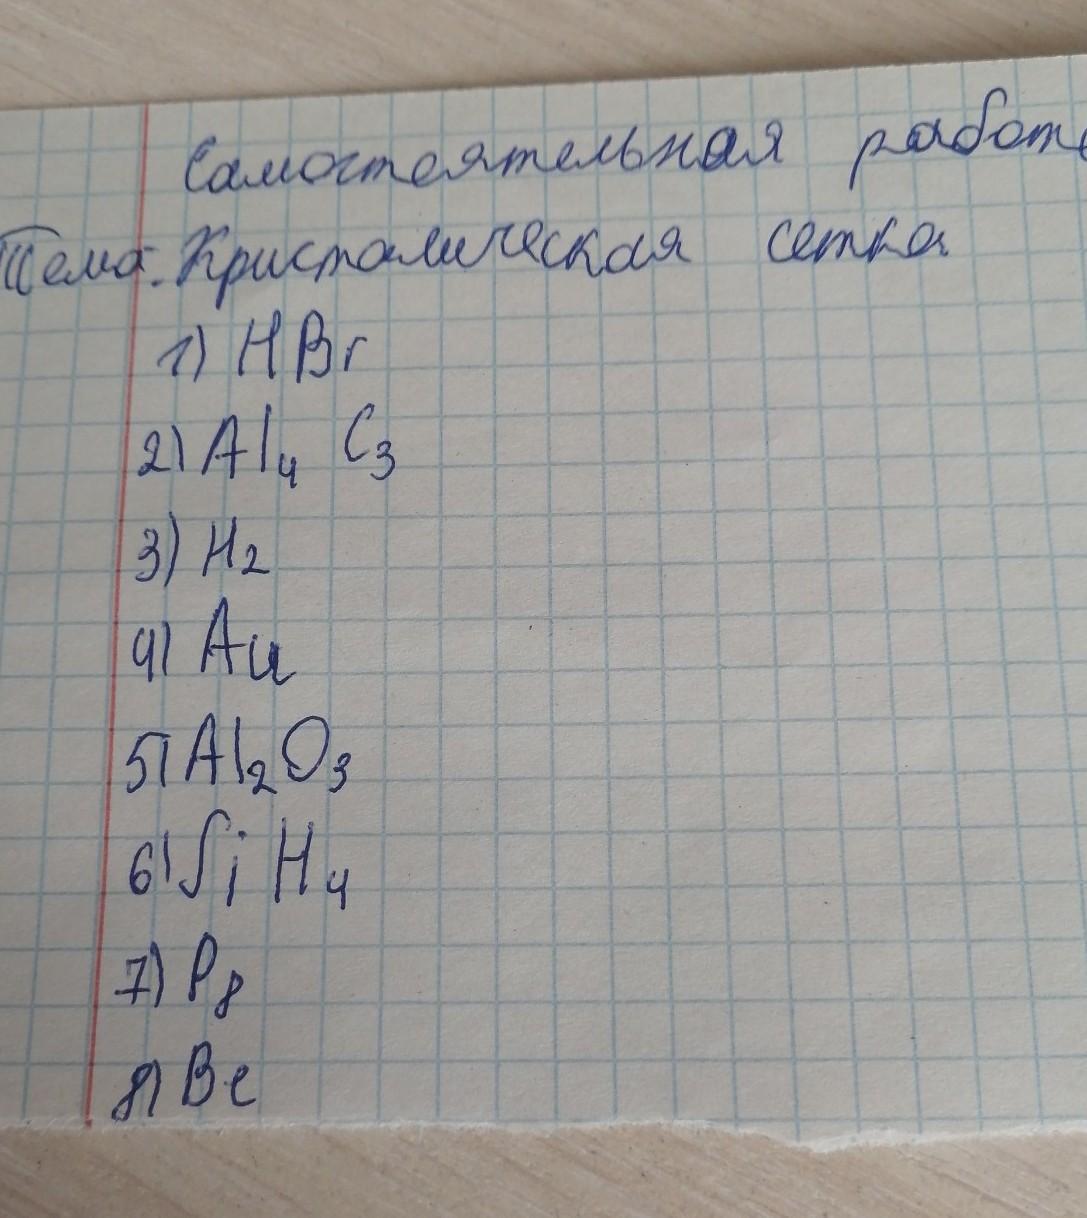 Самостеятельная работа
Тема: Кристалическая сетка
1) HBr
2) Al₄ C₃
3) H₂
4) Au
5) Al₂O₃
6) Si H₄
7) P₈
8) Be